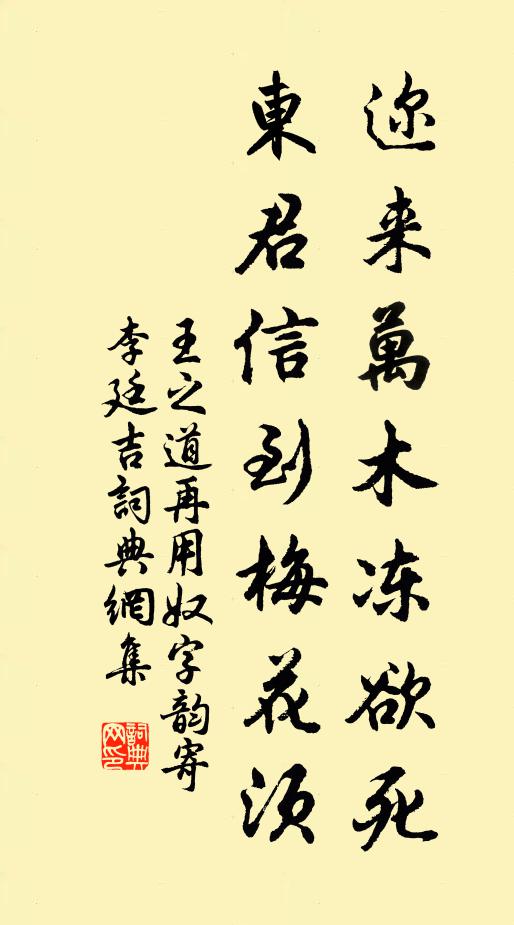 迩来萬木冻欲死
東君信到梅花须
王之道再用奴字韵寄
李廷吉詞典網集
詞典网印